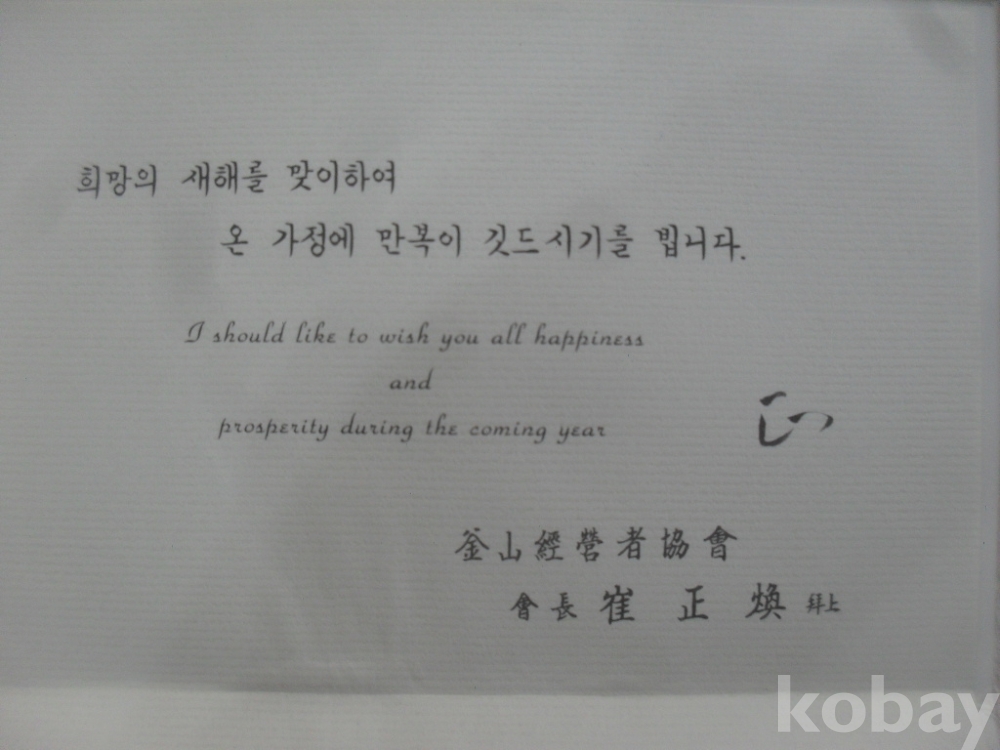 희망의 새해를 맞이하여
온 가정에 만복이 깃드시기를 빕니다.
I should like to wish you all happiness
and
prosperity during the coming year
釜山經營者協會
會長 崔 正 煥 拜上
kobay